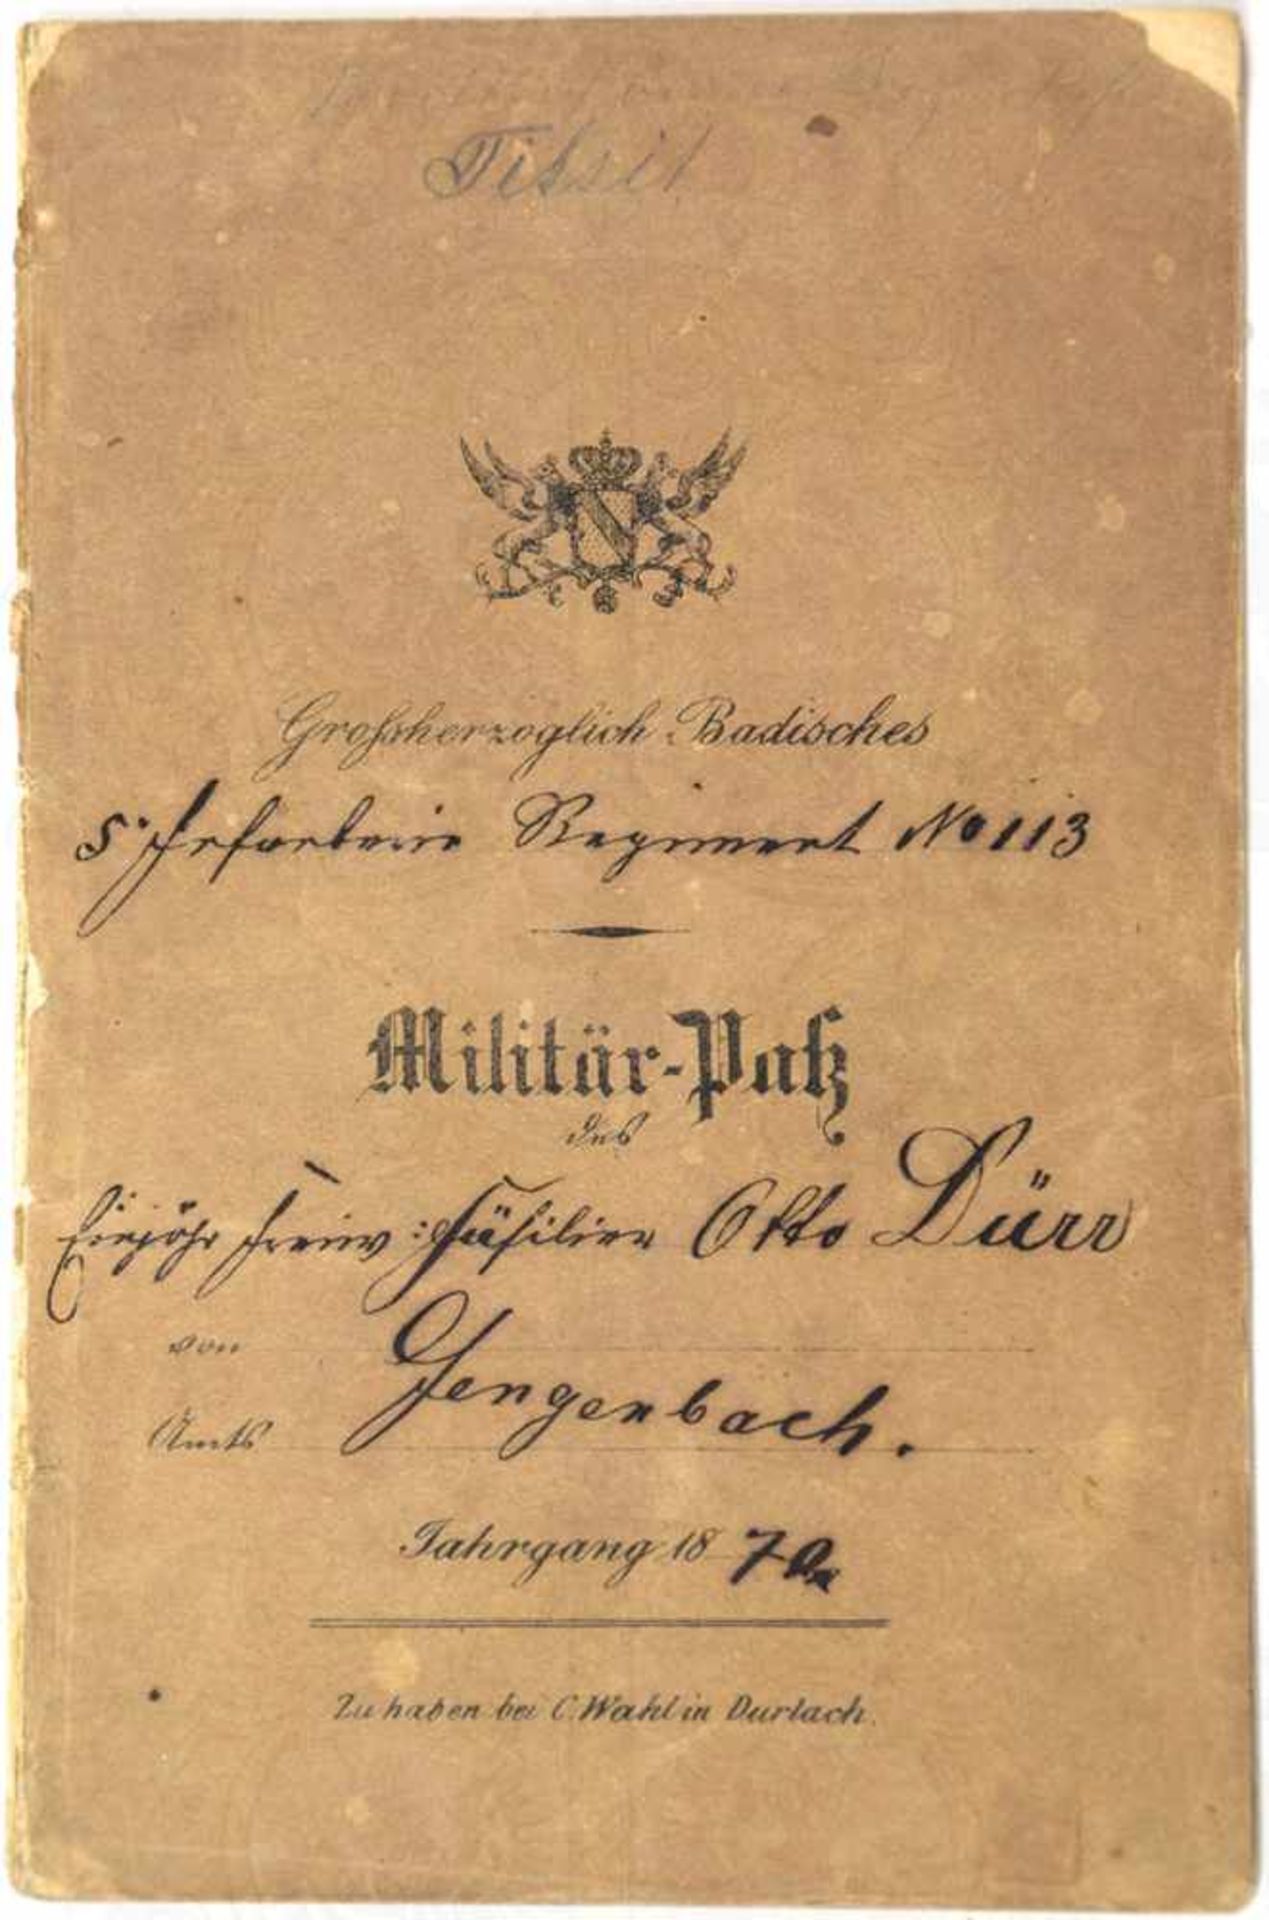 Tilsit
Großherzoglich Badisches
5. Infanterie Regiment No 113
Militär-Paß
des
Einjähr freiw: Füsilier Otto Dürr
von
Gengenbach.
Amts
Jahrgang 1870
Zu haben bei C. Wahl in Durlach.